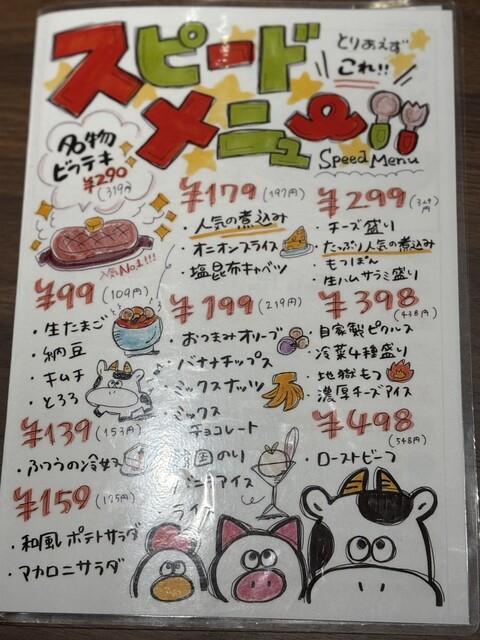 スピード
メニュー
とりあえず
これ!!
Speed Menu
名物
ビフテキ
¥290
(319円)
人気No.1!!!
¥99 (109円)
・生たまご
・納豆
・キムチ
・とろろ
¥139 (153円)
・ふつうの冷奴
¥159 (175円)
・和風ポテトサラダ
・マカロニサラダ
¥179 (197円)
・人気の煮込み
・オニオンスライス
・塩昆布キャベツ
¥199 (219円)
・おつまみオリーブ
・バナナチップス
・ミックスナッツ
・ミックス
チョコレート
国のり
アイス
¥299 (329円)
・チーズ盛り
・たっぷり人気の煮込み
・もつぽん
・生ハムサラミ盛り
¥398 (438円)
・自家製ピクルス
・冷菜4種盛り
・地獄もつ
・濃厚チーズアイス
¥498 (548円)
・ローストビーフ